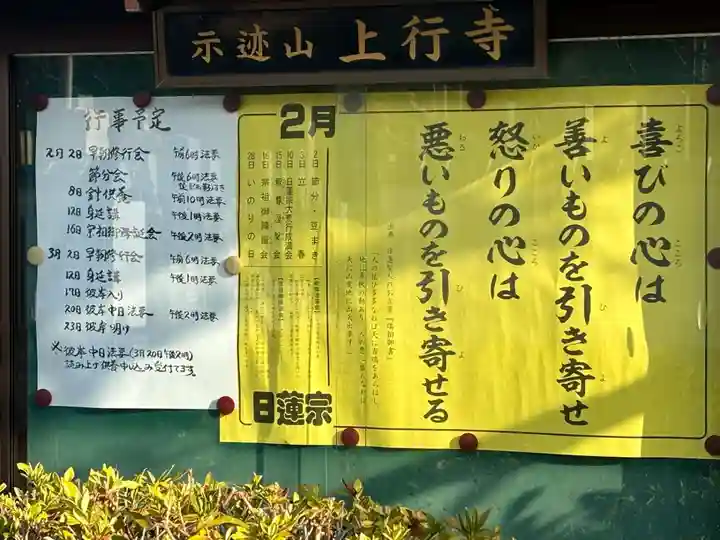 示迹山 上行寺
行事予定
2月2日 早朝修行会 午前6時法要
節分会 午後6時法要
8日 針供養 午前10時法要
12日 身延講 午後1時法要
16日 宗祖御降誕会 午後2時法要
3月2日 早朝修行会 午前6時法要
12日 身延講 午後1時法要
17日 彼岸入り
20日 彼岸中日法要 午後2時法要
23日 彼岸明け
※彼岸中日法要(3月20日午後2時)
読み上げ供養申し込み受付てます。
喜びの心は
よろこ こころ
善いものを引き寄せ
よ ひ よ
怒りの心は
いか こころ
悪いものを引き寄せる
わる ひ よ
2月
2日 節分・豆まき
3日 立春
10日 日蓮宗大荒行成満会
15日 釈尊涅槃会
16日 宗祖御降誕会
28日 いのりの日
日蓮宗